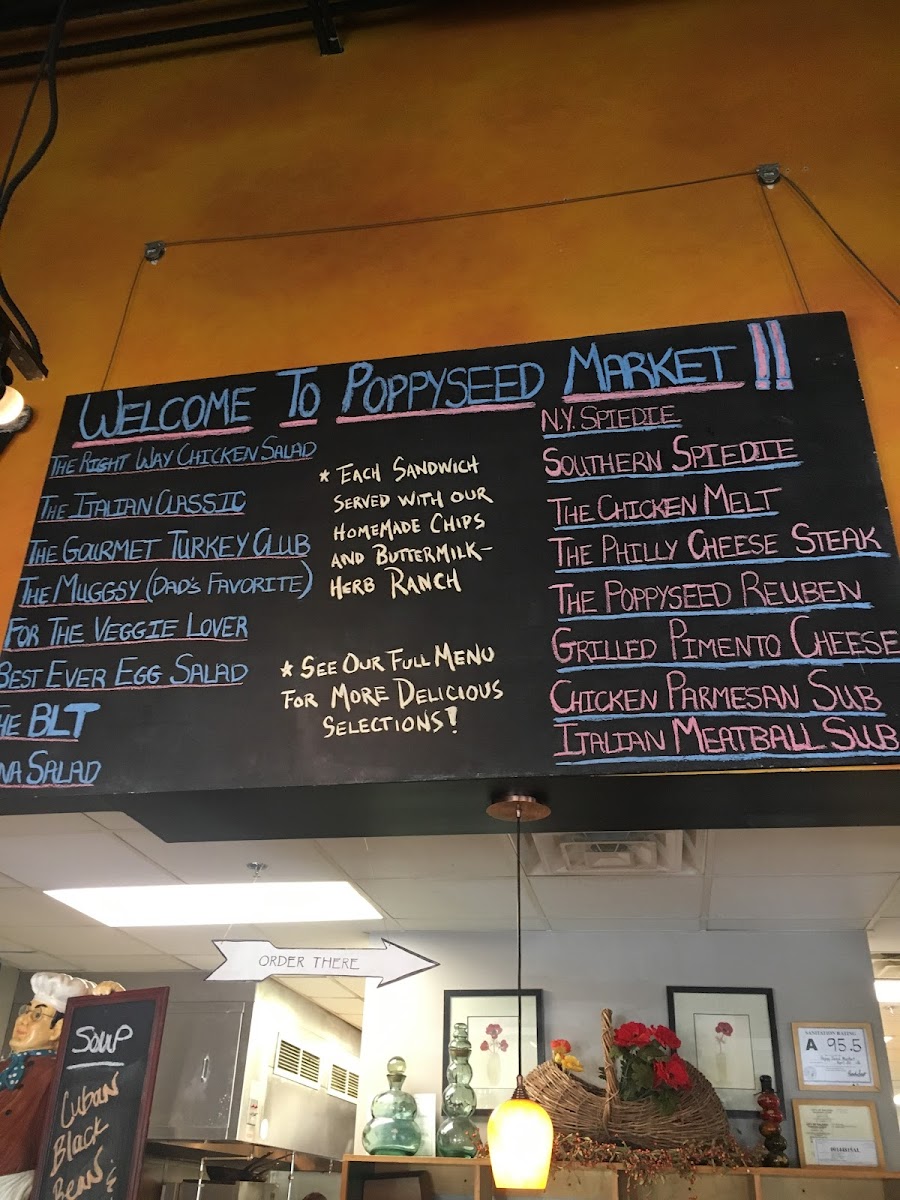 WELCOME TO POPPYSEED MARKET !!
THE RIGHT WAY CHICKEN SALAD
THE ITALIAN CLASSIC
THE GOURMET TURKEY CLUB
THE MUGGSY (DAD'S FAVORITE)
FOR THE VEGGIE LOVER
BEST EVER EGG SALAD
THE BLT
NA SALAD
* EACH SANDWICH
SERVED WITH OUR
HOMEMADE CHIPS
AND BUTTERMILK-
HERB RANCH
* SEE OUR FULL MENU
FOR MORE DELICIOUS
SELECTIONS!
N.Y. SPIEDIE
SOUTHERN SPIEDIE
THE CHICKEN MELT
THE PHILLY CHEESE STEAK
THE POPPYSEED REUBEN
GRILLED PIMENTO CHEESE
CHICKEN PARMESAN SUB
ITALIAN MEATBALL SUB
ORDER THERE
SOUP
Cuban
Black
Bean &
SANITATION RATING
A 95.5